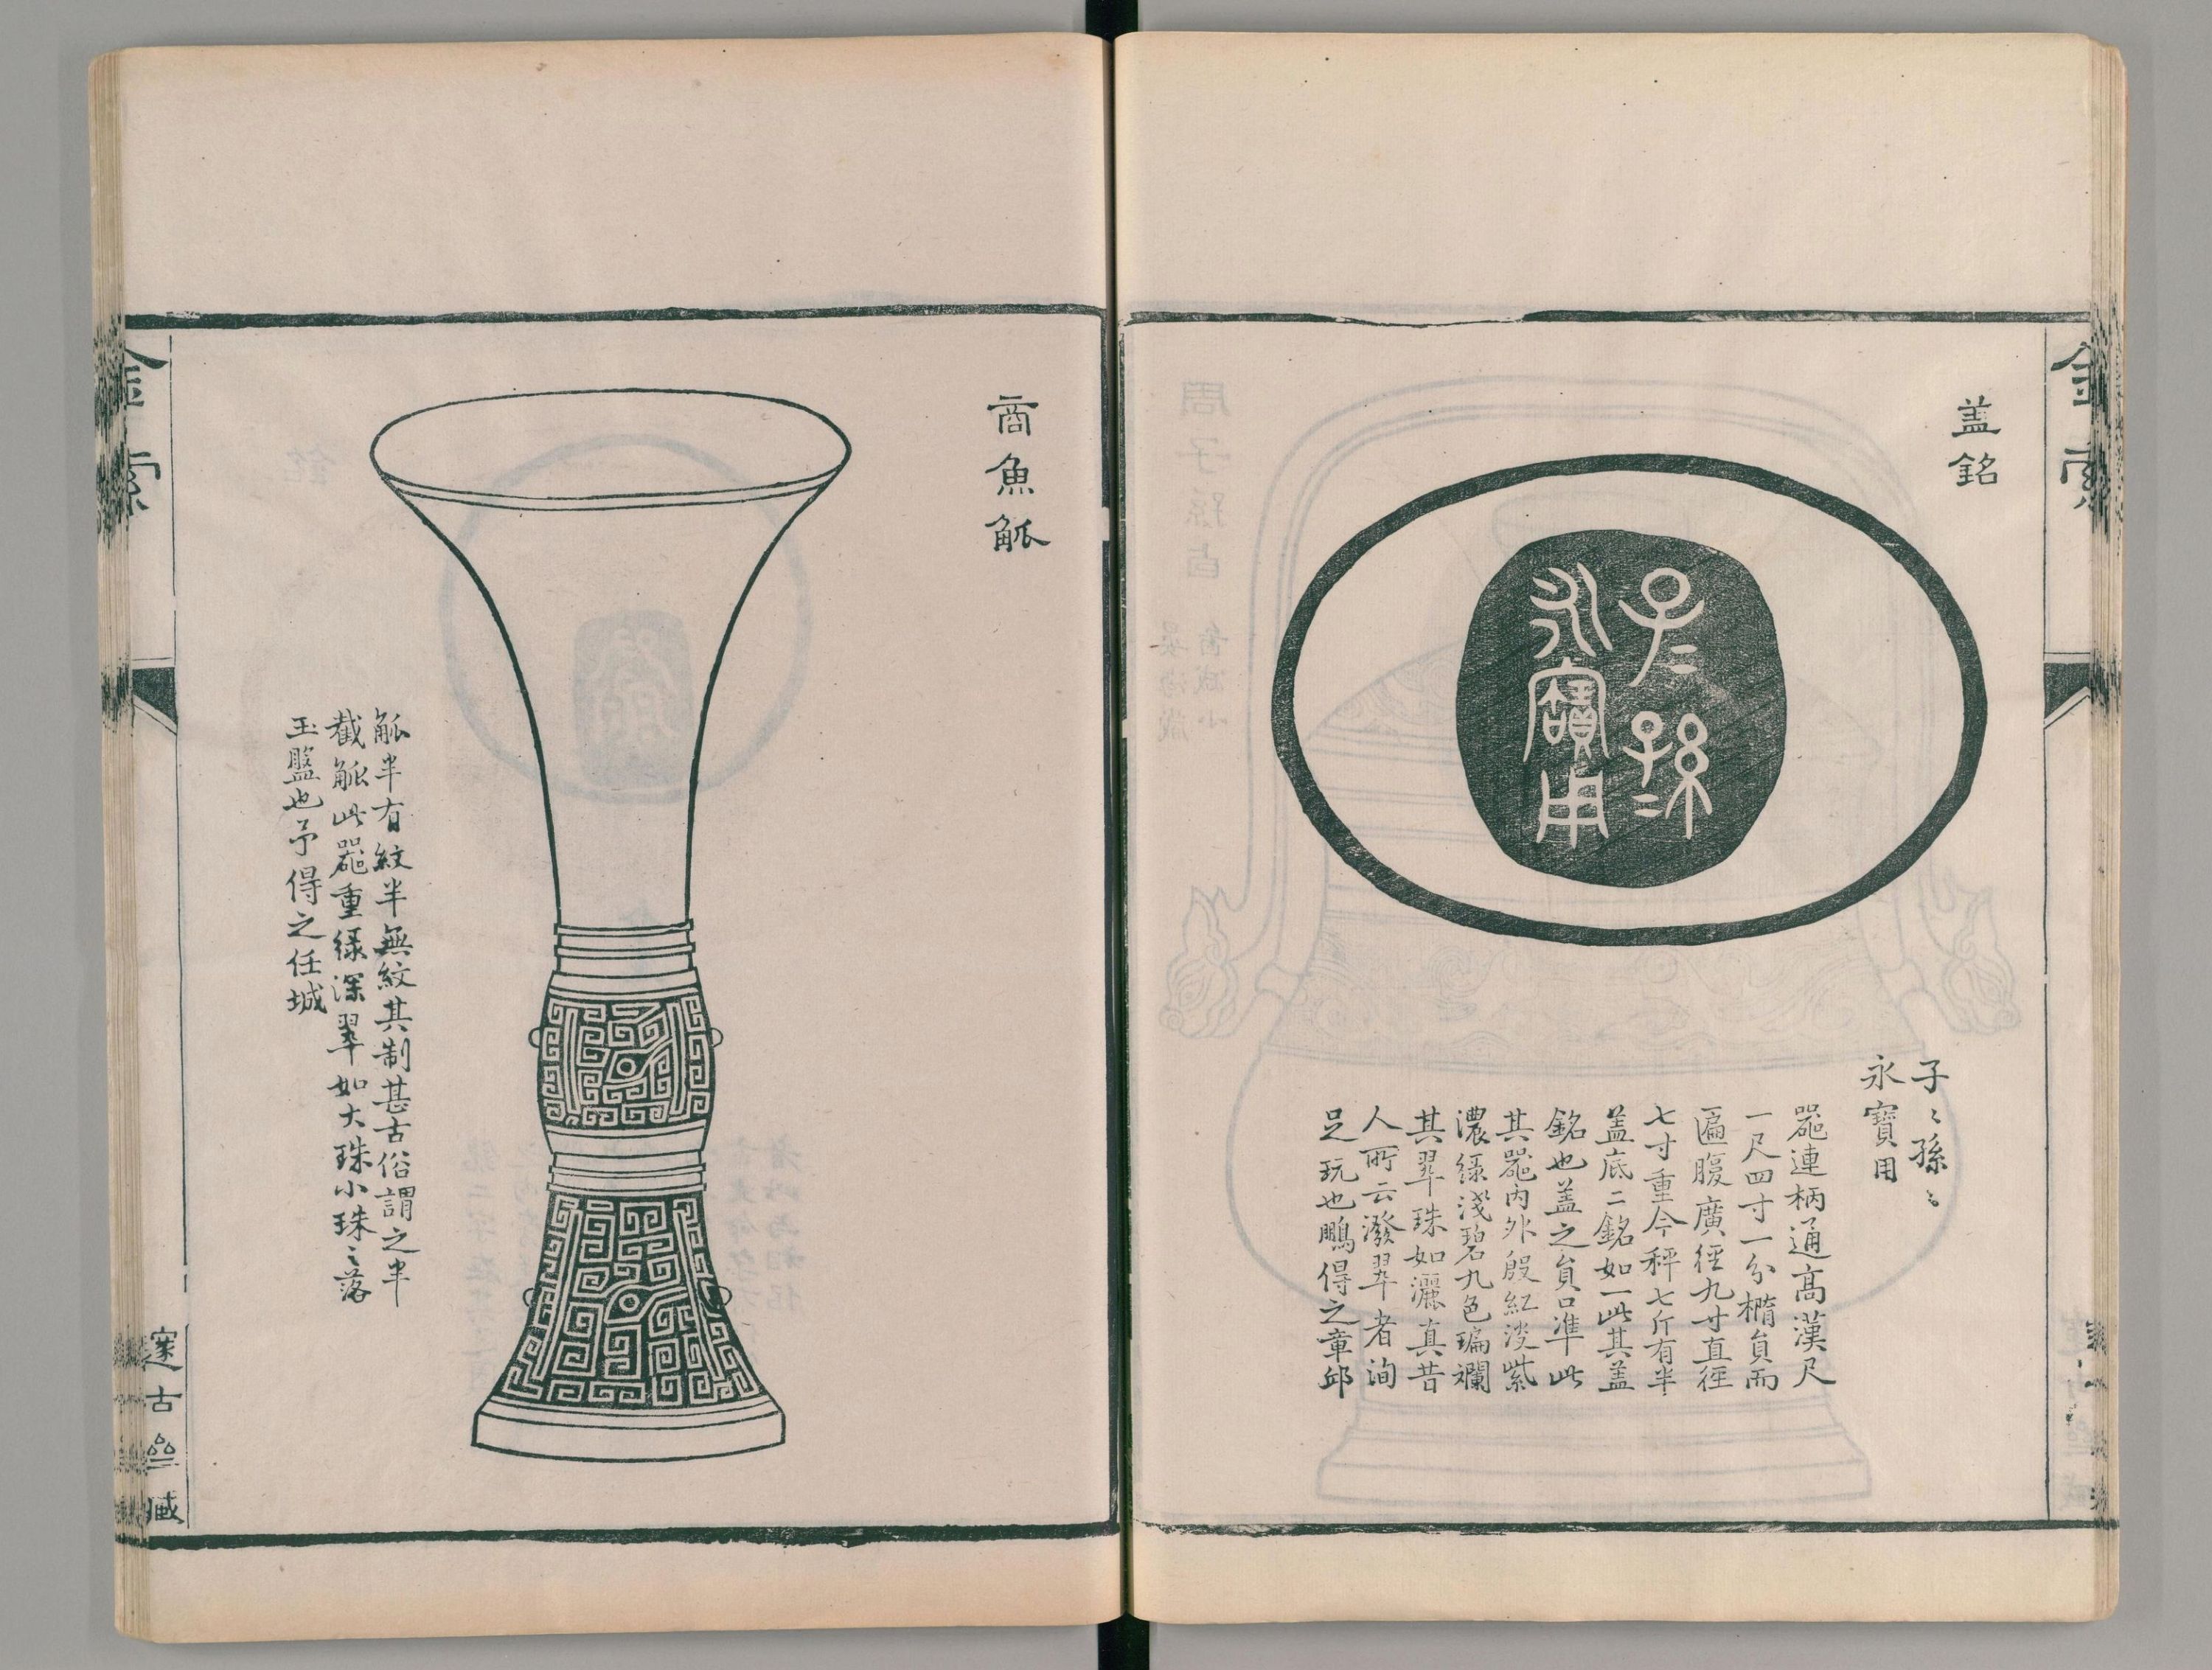 金索
蓋銘
子〻孫〻
永寶用
子〻孫〻
永寶用
器連柄通高漢尺
一尺四寸一分橢員而
匾腹廣徑九寸直徑
七寸重今秤七斤有半
蓋底二銘如一此其蓋
銘也蓋之員口準此
其器內外殷紅淡紫
濃綠淺碧九色斒斕
其翠珠如灑真昔
人所云潑翠者洵
足玩也鵬得之章邱
商魚觚
觚半有紋半無紋其制甚古俗謂之半
截觚此器重綠深翠如大珠小珠〻落
玉盤也予得之任城
金索
邃古齋藏